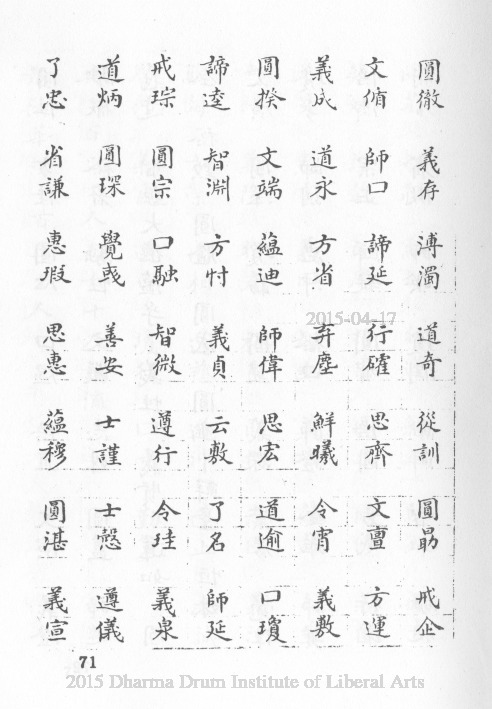 圓徹 義存 溥濁 道奇 從訓 圓勗 戒企
文脩 師口 諦延 行確 思齊 文亶 方運
義成 道永 方省 弃塵 鮮曦 令賓 義敷
圓揆 文端 蘊迪 師偉 思宏 道逾 口瓊
諦逵 智淵 方忖 義貞 云敷 了名 師延
戒琮 圓宗 口融 智微 遵行 令珪 義泉
道炳 圓琛 覺彧 善安 士謹 士慤 遵儀
了忠 省謙 惠瑕 思惠 蘊穆 圓湛 義宣
2015-04-17
71
2015 Dharma Drum Institute of Liberal Arts